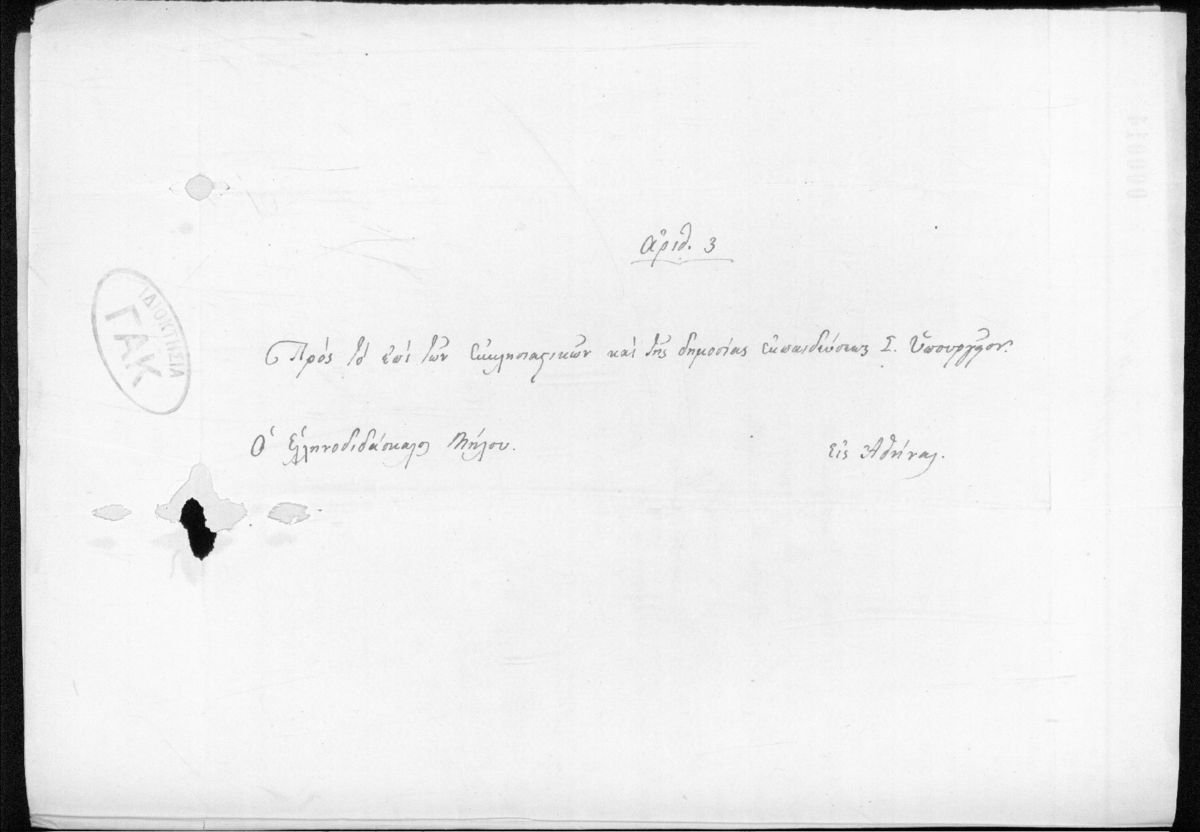 ἀριθ. 3
Πρὸς τὸ ἐπὶ τῶν ἐκκλησιαστικῶν καὶ τῆς δημοσίας ἐκπαιδεύσεως Σ. Ὑπουργεῖον.
Ὁ Ἑλληνοδιδάσκαλος Μήλου.
εἰς Ἀθήνας.
ΙΔΙΟΚΤΗΣΙΑ
ΓΑΚ
0000144